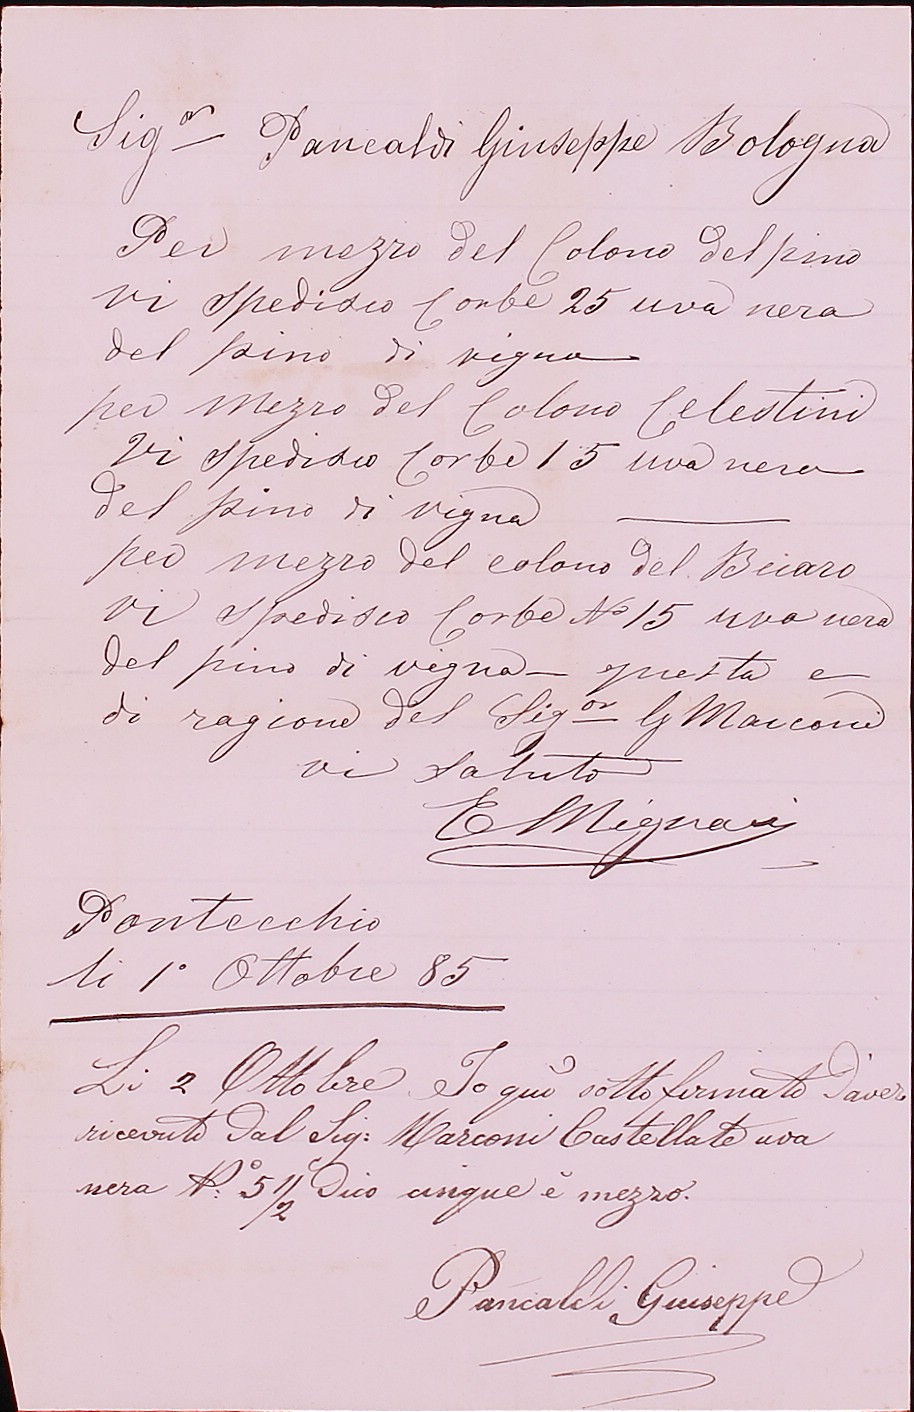 Sig.or Pancaldi Giuseppe Bologna
Per mezzo del Colono del pino
vi spedisco Corbe 25 uva nera
del pino di vigna
per mezzo del Colono Celestini
Vi spedisco Corbe 15 uva nera
del pino di vigna
per mezzo del colono del
vi spedisco Corbe No 15 uva nera
del pino di vigna – questa e
di ragione del Sig.or G Marconi
vi saluto
E Mignani
Pontecchio
li 1° Ottobre 85
Li 2 Ottobre Io quì sotto firmato d'aver
ricevuto dal Sig: Marconi Castellate uva
nera N.° 5 1/2 Dico cinque è mezzo.
Pancaldi Giuseppe